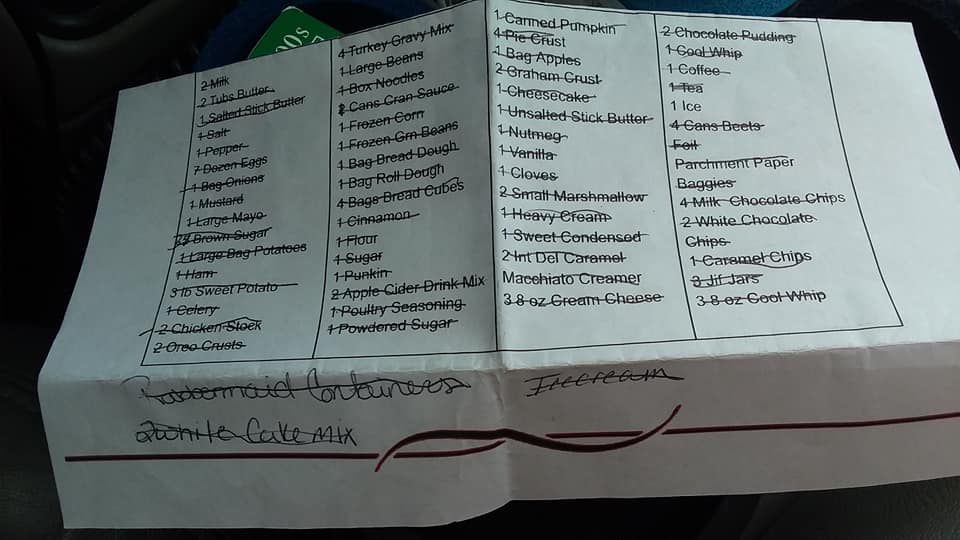 00s
2 Milk
2 Tubs Butter
1 Salted Stick Butter
1 Salt
1 Pepper
7 Dozen Eggs
1 Bag Onions
1 Mustard
1 Large Mayo
Brown Sugar
1 Large Bag Potatoes
1 Ham
3 lb Sweet Potato
1 Celery
2 Chicken Stock
2 Oreo Crusts
4 Turkey Gravy Mix
1 Large Beans
1 Box Noodles
2 Cans Cran Sauce
1 Frozen Corn
1 Frozen Grn Beans
1 Bag Bread Dough
1 Bag Roll Dough
4 Bags Bread Cube's
1 Cinnamon
1 Flour
1 Sugar
1 Punkin
2 Apple Cider Drink Mix
1 Poultry Seasoning
1 Powdered Sugar
1 Canned Pumpkin
4 Pie Crust
1 Bag Apples
2 Graham Crust
1 Cheesecake
1 Unsalted Stick Butter
1 Nutmeg
1 Vanilla
1 Cloves
2 Small Marshmallow
1 Heavy Cream
1 Sweet Condensed
2 Int Del Caramel
Macchiato Creamer
3 8 oz Cream Cheese
2 Chocolate Pudding
1 Cool Whip
1 Coffee
1 Tea
1 Ice
4 Cans Beets
Foil
Parchment Paper
Baggies
4 Milk Chocolate Chips
2 White Chocolate
Chips
1 Caramel Chips
3 Jif Jars
3 8 oz Cool Whip
Rubbermaid Containers
Icecream
2 White Cake Mix